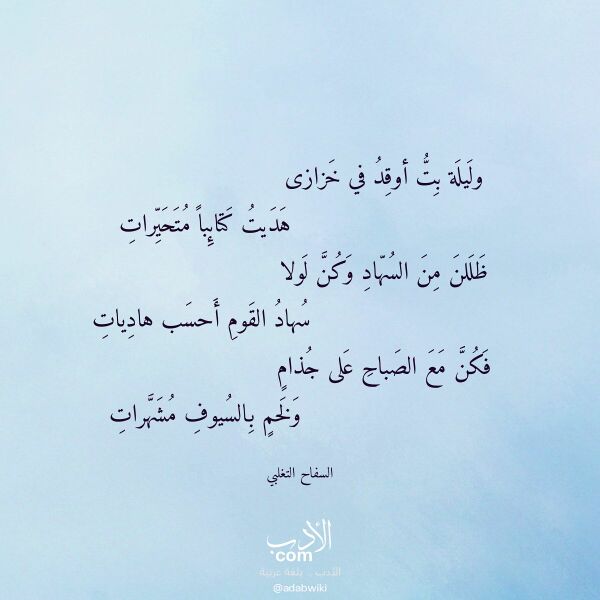 ولَيلَة بِتُّ أوقِدُ في خَزازى
هَدَيتُ كَتايِباً مُتَحَيِّراتِ
ظَلَلنَ مِنَ السُهّادِ وَكُنَّ لَولا
سُهادُ القَومِ أَحسَب هادِياتِ
فَكُنَّ مَعَ الصَباحِ عَلى جُذامٍ
وَلَخمٍ بِالسُيوفِ مُشَهَّراتِ
السفاح التغلبي
الأدب
com
الأدب .. بلغة عربية
@adabwiki